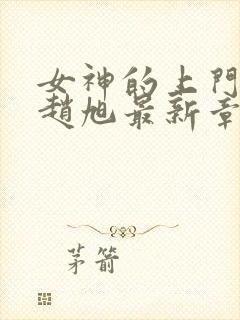 女神的上門
趙旭最新章
茅箭